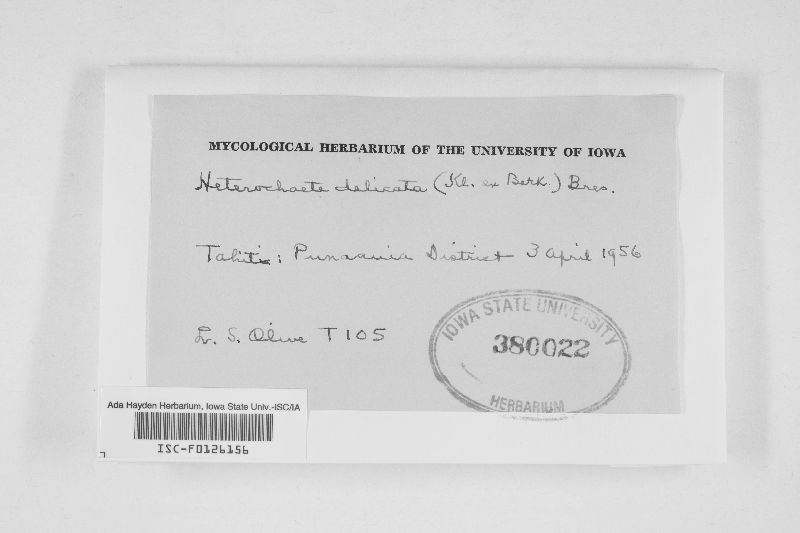 MYCOLOGICAL HERBARIUM OF THE UNIVERSITY OF IOWA
Heterochaete delicata (Kl. ex Berk.) Bres.
Tahiti: Punaauia District 3 April 1956
L. S. Olive T 105
IOWA STATE UNIVERSITY
380022
HERBARIUM
Ada Hayden Herbarium, Iowa State Univ.-ISC/IA
ISC-F0126156